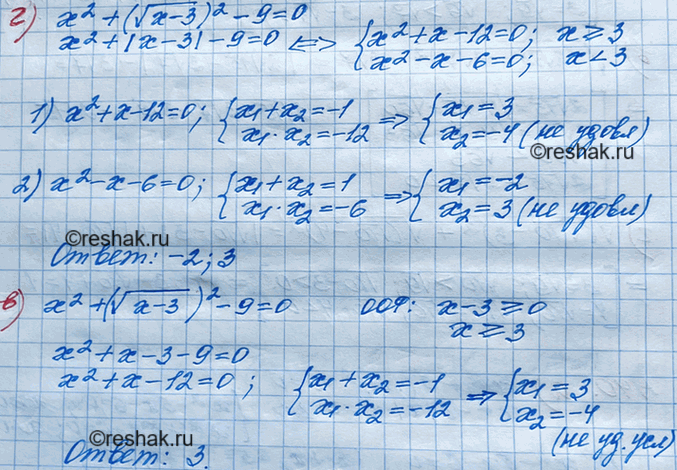 г) x² + (√x-3)² - 9 = 0
x² + |x-3| - 9 = 0 ⇔ { x² + x - 12 = 0; x ≥ 3
x² - x - 6 = 0; x < 3
1) x² + x - 12 = 0; { x₁ + x₂ = -1 ⇒ { x₁ = 3
x₁ · x₂ = -12 x₂ = -4 (не удовл)
©reshak.ru
2) x² - x - 6 = 0; { x₁ + x₂ = 1 ⇒ { x₁ = -2
x₁ · x₂ = -6 x₂ = 3 (не удовл)
©reshak.ru
Ответ: -2; 3
в) x² + (√x-3)² - 9 = 0 ООФ: x - 3 ≥ 0
x ≥ 3
x² + x - 3 - 9 = 0
x² + x - 12 = 0; { x₁ + x₂ = -1 ⇒ { x₁ = 3
x₁ · x₂ = -12 x₂ = -4
©reshak.ru
(не уд. усл)
Ответ: 3.
©reshak.ru